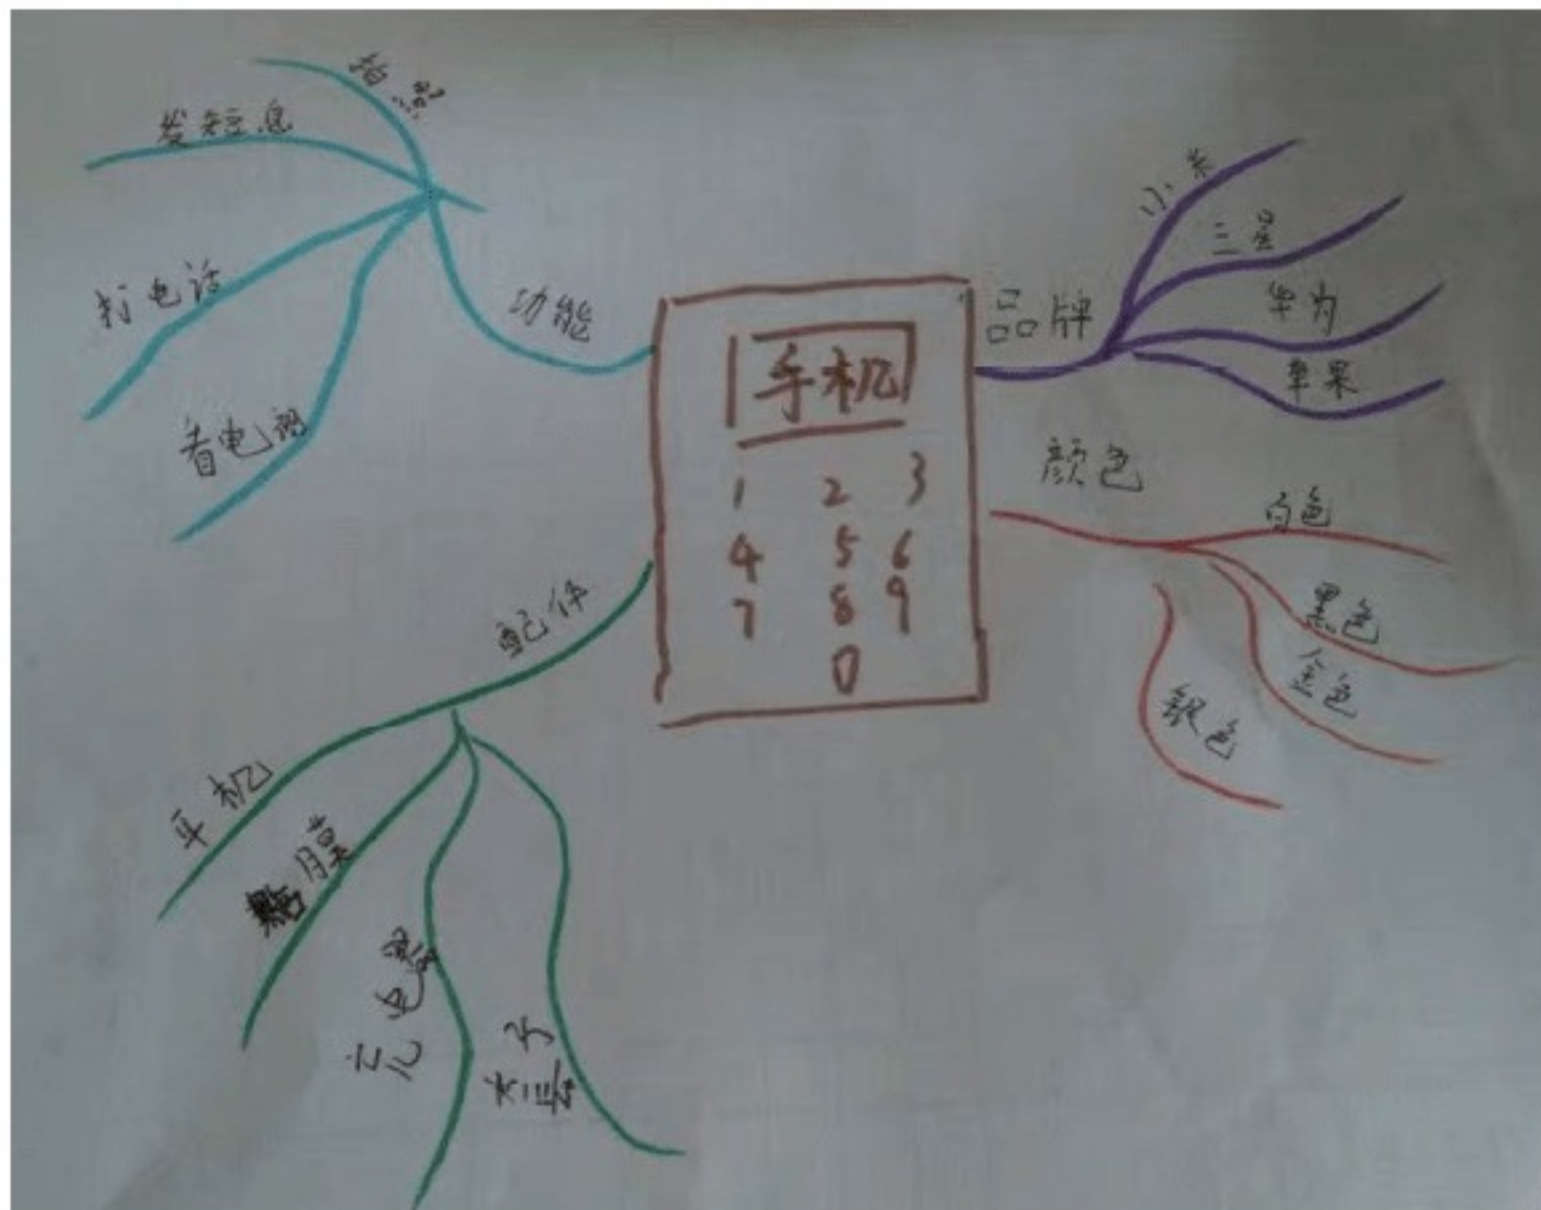 手机
1 2 3
4 5 6
7 8 9
0
功能
拍照
发短息
打电话
看电视
品牌
小米
三星
华为
苹果
颜色
白色
黑色
金色
银色
配件
耳机
贴膜
充电器
套子